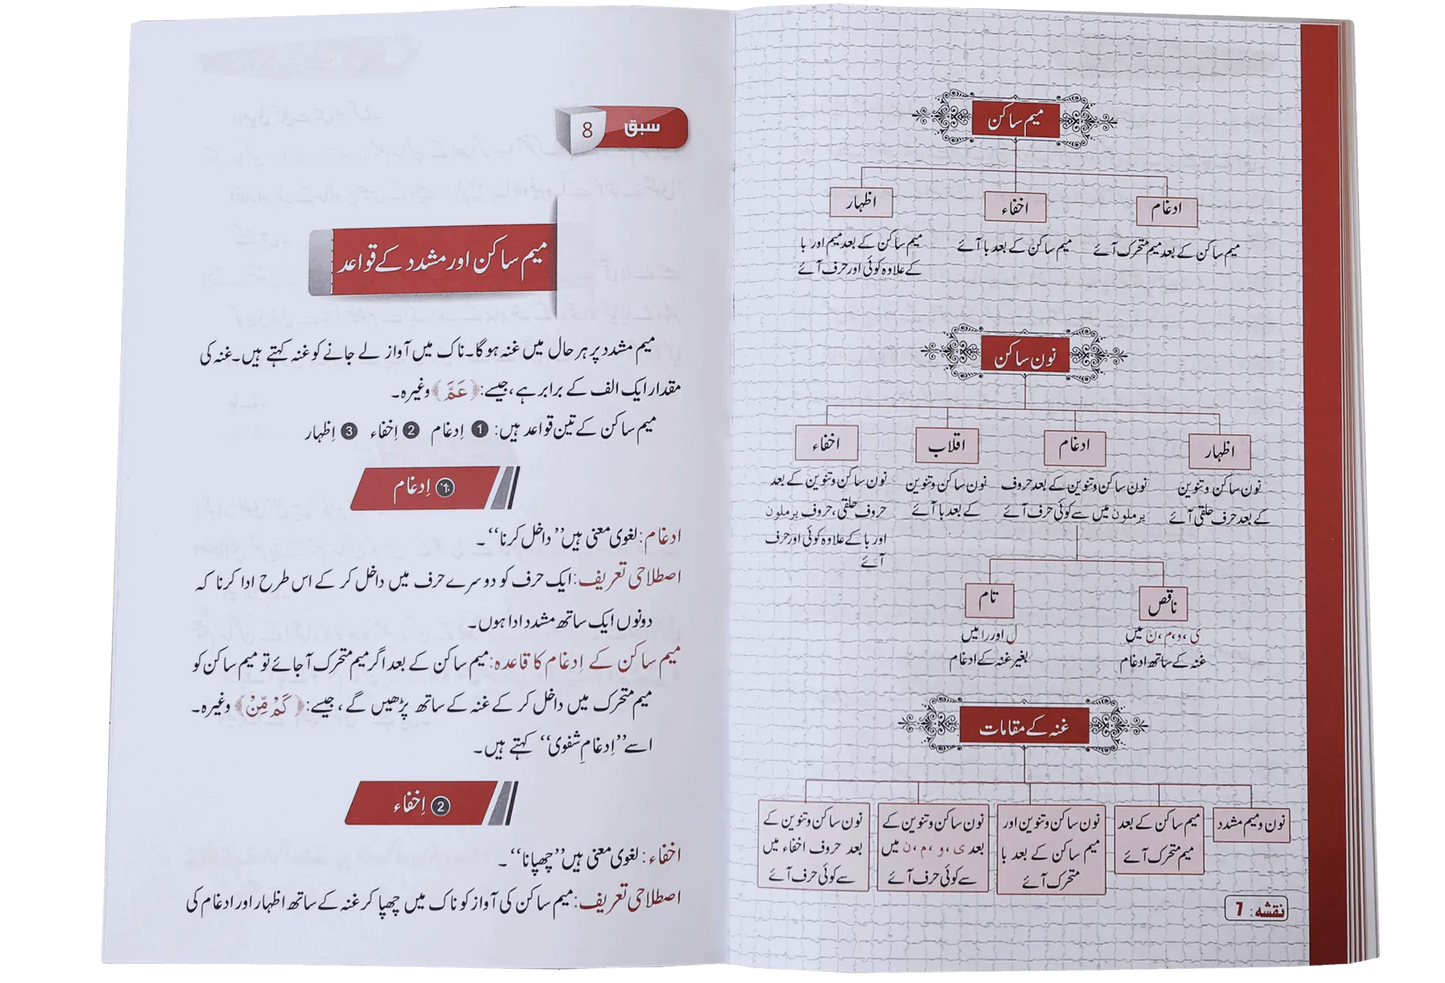 میم ساکن
ادغام
میم ساکن کے بعد میم متحرک آئے
اخفاء
میم ساکن کے بعد با آئے
اظہار
میم ساکن کے بعد میم اور با
کے علاوہ کوئی اور حرف آئے
نون ساکن
اظہار
نون ساکن و تنوین
کے بعد حرف حلقی آئے
ادغام
نون ساکن و تنوین کے بعد حروف
یرملون میں سے کوئی حرف آئے
اقلاب
نون ساکن و تنوین
کے بعد با آئے
اخفاء
نون ساکن و تنوین کے بعد
حروف حلقی، حروف یرملون
اور با کے علاوہ کوئی اور حرف
آئے
ناقص
ی، و، م، ن میں
غنہ کے ساتھ ادغام
تام
ل اور را میں
بغیر غنہ کے ادغام
غنہ کے مقامات
نون و میم مشدد
میم ساکن کے بعد
میم متحرک آئے
نون ساکن و تنوین اور
میم ساکن کے بعد با
متحرک آئے
نون ساکن و تنوین کے
بعد ی، و، م، ن میں
سے کوئی حرف آئے
نون ساکن و تنوین کے
بعد حروف اخفاء میں
سے کوئی حرف آئے
نقشہ: 7
سبق 8
میم ساکن اور مشدد کے قواعد
میم مشدد پر ہر حال میں غنہ ہو گا۔ ناک میں آواز لے جانے کو غنہ کہتے ہیں۔ غنہ کی
مقدار ایک الف کے برابر ہے، جیسے: ﴿عَمَّ﴾ وغیرہ۔
میم ساکن کے تین قواعد ہیں: 1 اِدغام 2 اِخفاء 3 اِظہار
1 اِدغام
ادغام: لغوی معنی ہیں ”داخل کرنا“۔
اصطلاحی تعریف: ایک حرف کو دوسرے حرف میں داخل کر کے اس طرح ادا کرنا کہ
دونوں ایک ساتھ مشدد ادا ہوں۔
میم ساکن کے اِدغام کا قاعدہ: میم ساکن کے بعد اگر میم متحرک آ جائے تو میم ساکن کو
میم متحرک میں داخل کر کے غنہ کے ساتھ پڑھیں گے، جیسے: ﴿كَمْ مِّنْ﴾ وغیرہ۔
اسے ”اِدغامِ شفوی“ کہتے ہیں۔
2 اِخفاء
اخفاء: لغوی معنی ہیں ”چھپانا“۔
اصطلاحی تعریف: میم ساکن کی آواز کو ناک میں چھپا کر غنہ کے ساتھ اظہار اور ادغام کی